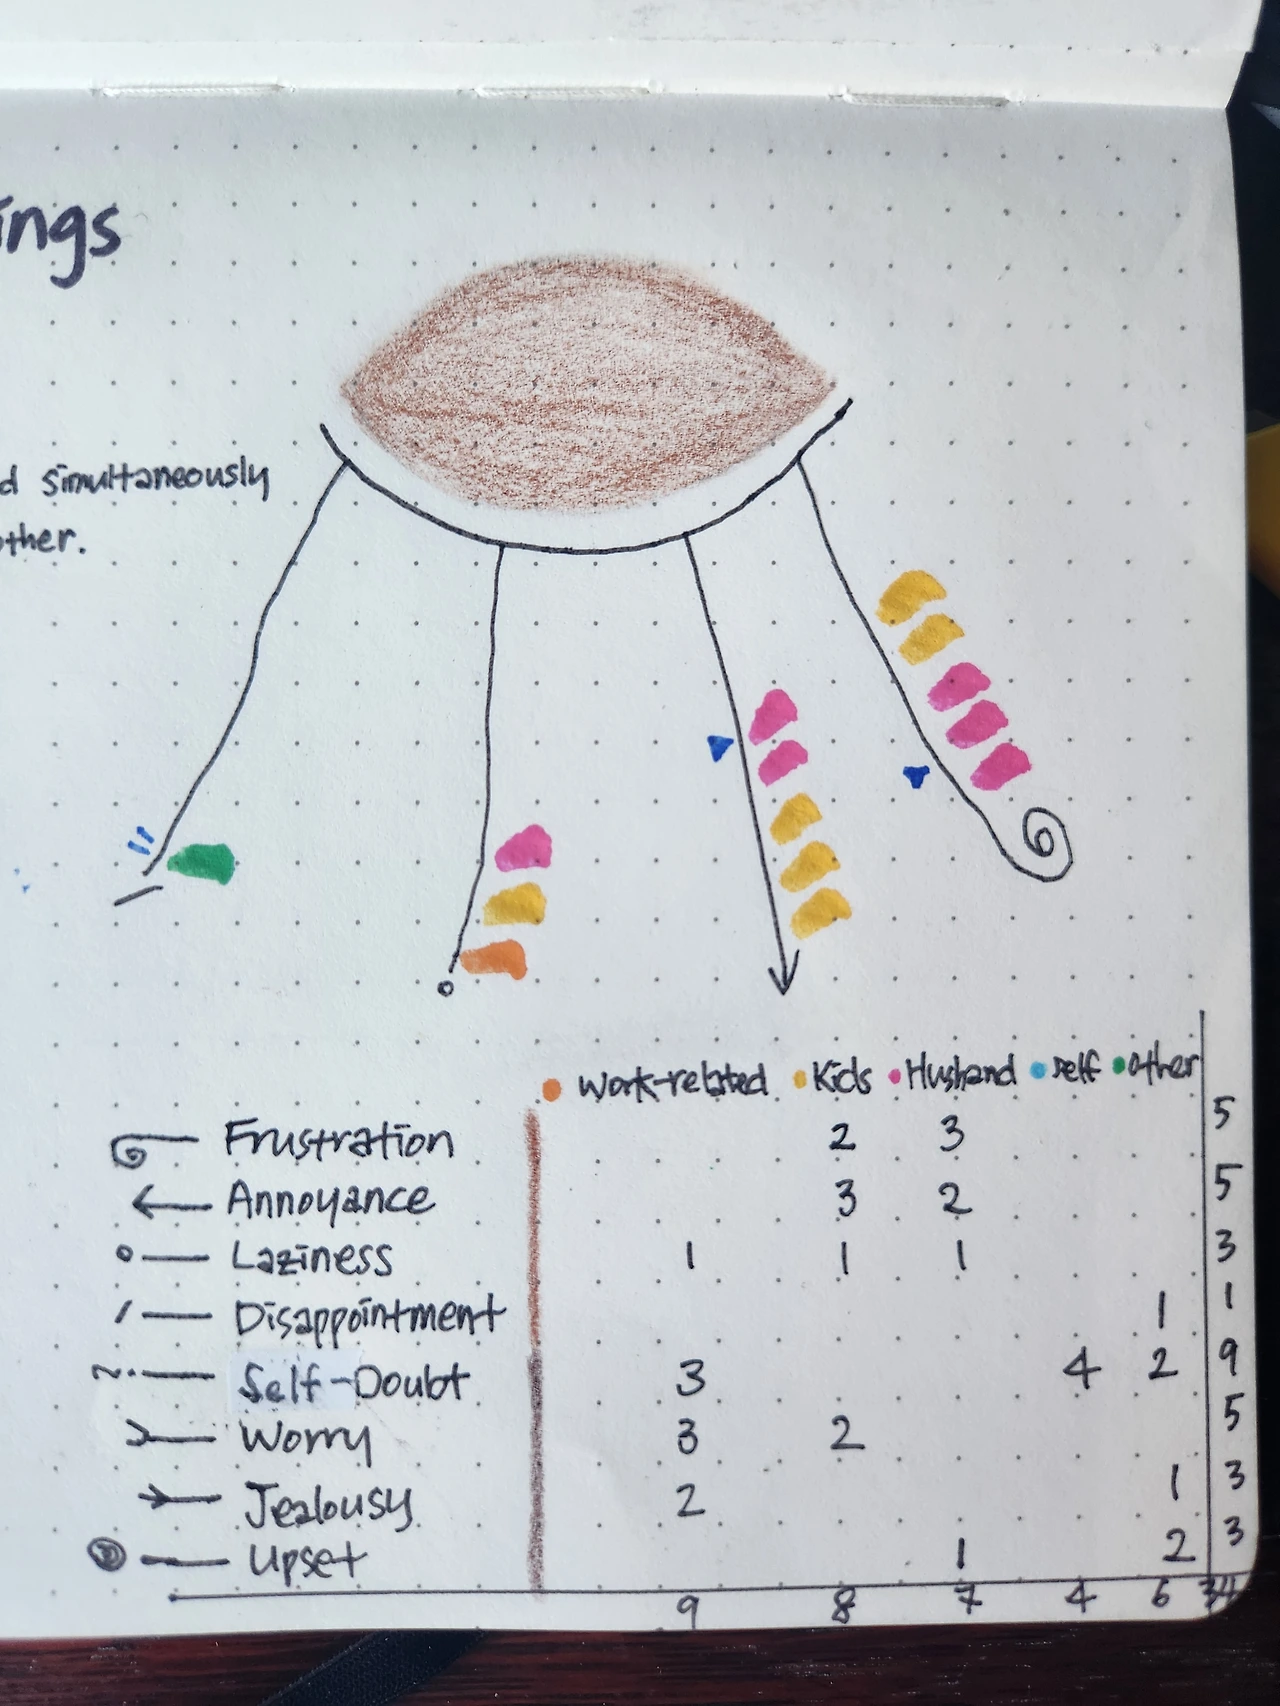 ings
d simultaneously
other.
work-related Kids Husband self other
Frustration 2 3 5
Annoyance 3 2 5
Laziness 1 1 1 3
Disappointment 1 1
Self-Doubt 3 4 2 9
Worry 3 2 5
Jealousy 2 1 3
Upset 1 2 3
9 8 7 4 6 34